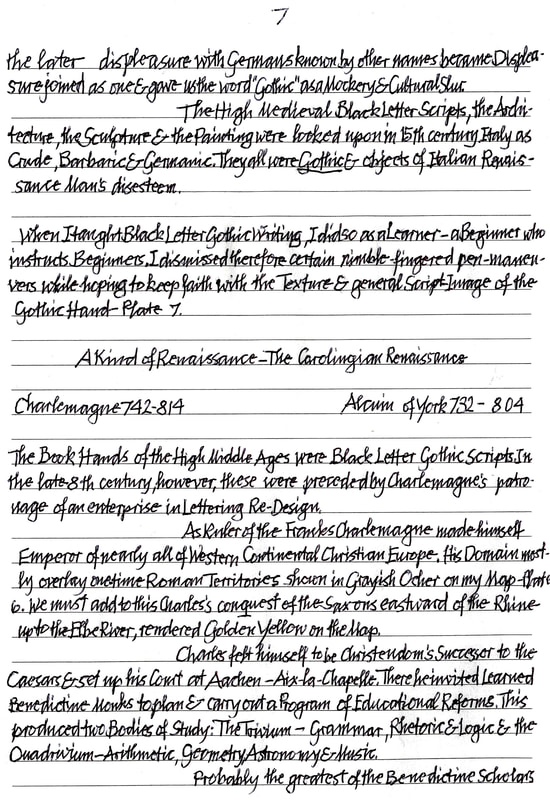 7
the later displeasure with Germans known by other names became Displea-
sure joined as one & gave us the word "Gothic" as a Mockery & Cultural Slur.
The High Medieval Black Letter Scripts, the Archi-
tecture, the Sculpture & the Painting were looked upon in 15th century Italy as
Crude, Barbaric & Germanic. They all were Gothic & objects of Italian Renais-
sance Man's disesteem.
When I taught Black Letter Gothic Writing, I did so as a Learner - a Beginner who
instructs Beginners. I dismissed therefore certain nimble-fingered pen-maneu-
vers while hoping to keep faith with the Texture & general Script-Image of the
Gothic Hand - Plate 7.
A Kind of Renaissance - The Carolingian Renaissance
Charlemagne 742-814 Alcuin of York 732 - 804
The Book Hands of the High Middle Ages were Black Letter Gothic Scripts. In
the late 8th century, however, these were preceded by Charlemagne's patro-
nage of an enterprise in Lettering Re-Design.
As Ruler of the Franks Charlemagne made himself
Emperor of nearly all of Western Continental Christian Europe. His Domain most-
ly overlay onetime Roman Territories shown in Grayish Ocher on my Map - Plate
6. We must add to this Charles's conquest of the Saxons eastward of the Rhine
up to the Elbe River, rendered Golden Yellow on the Map.
Charles felt himself to be Christendom's Successor to the
Caesars & set up his Court at Aachen - Aix-la-Chapelle. There he invited Learned
Benedictine Monks to plan & carry out a Program of Educational Reforms. This
produced two Bodies of Study: The Trivium - Grammar, Rhetoric & Logic & the
Quadrivium - Arithmetic, Geometry Astronomy & Music.
Probably the greatest of the Benedictine Scholars